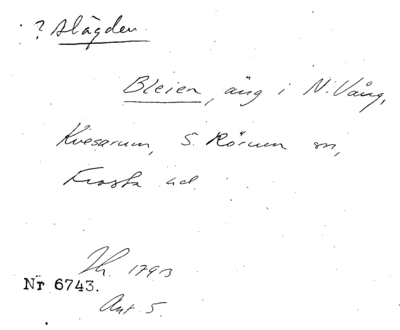 ? slägden.
Bleien, äng i N. Vång,
Kvesarum, S. Rörum sn,
Frosta hd.
Th. 1793
Nr 6743.
Ant. 5.